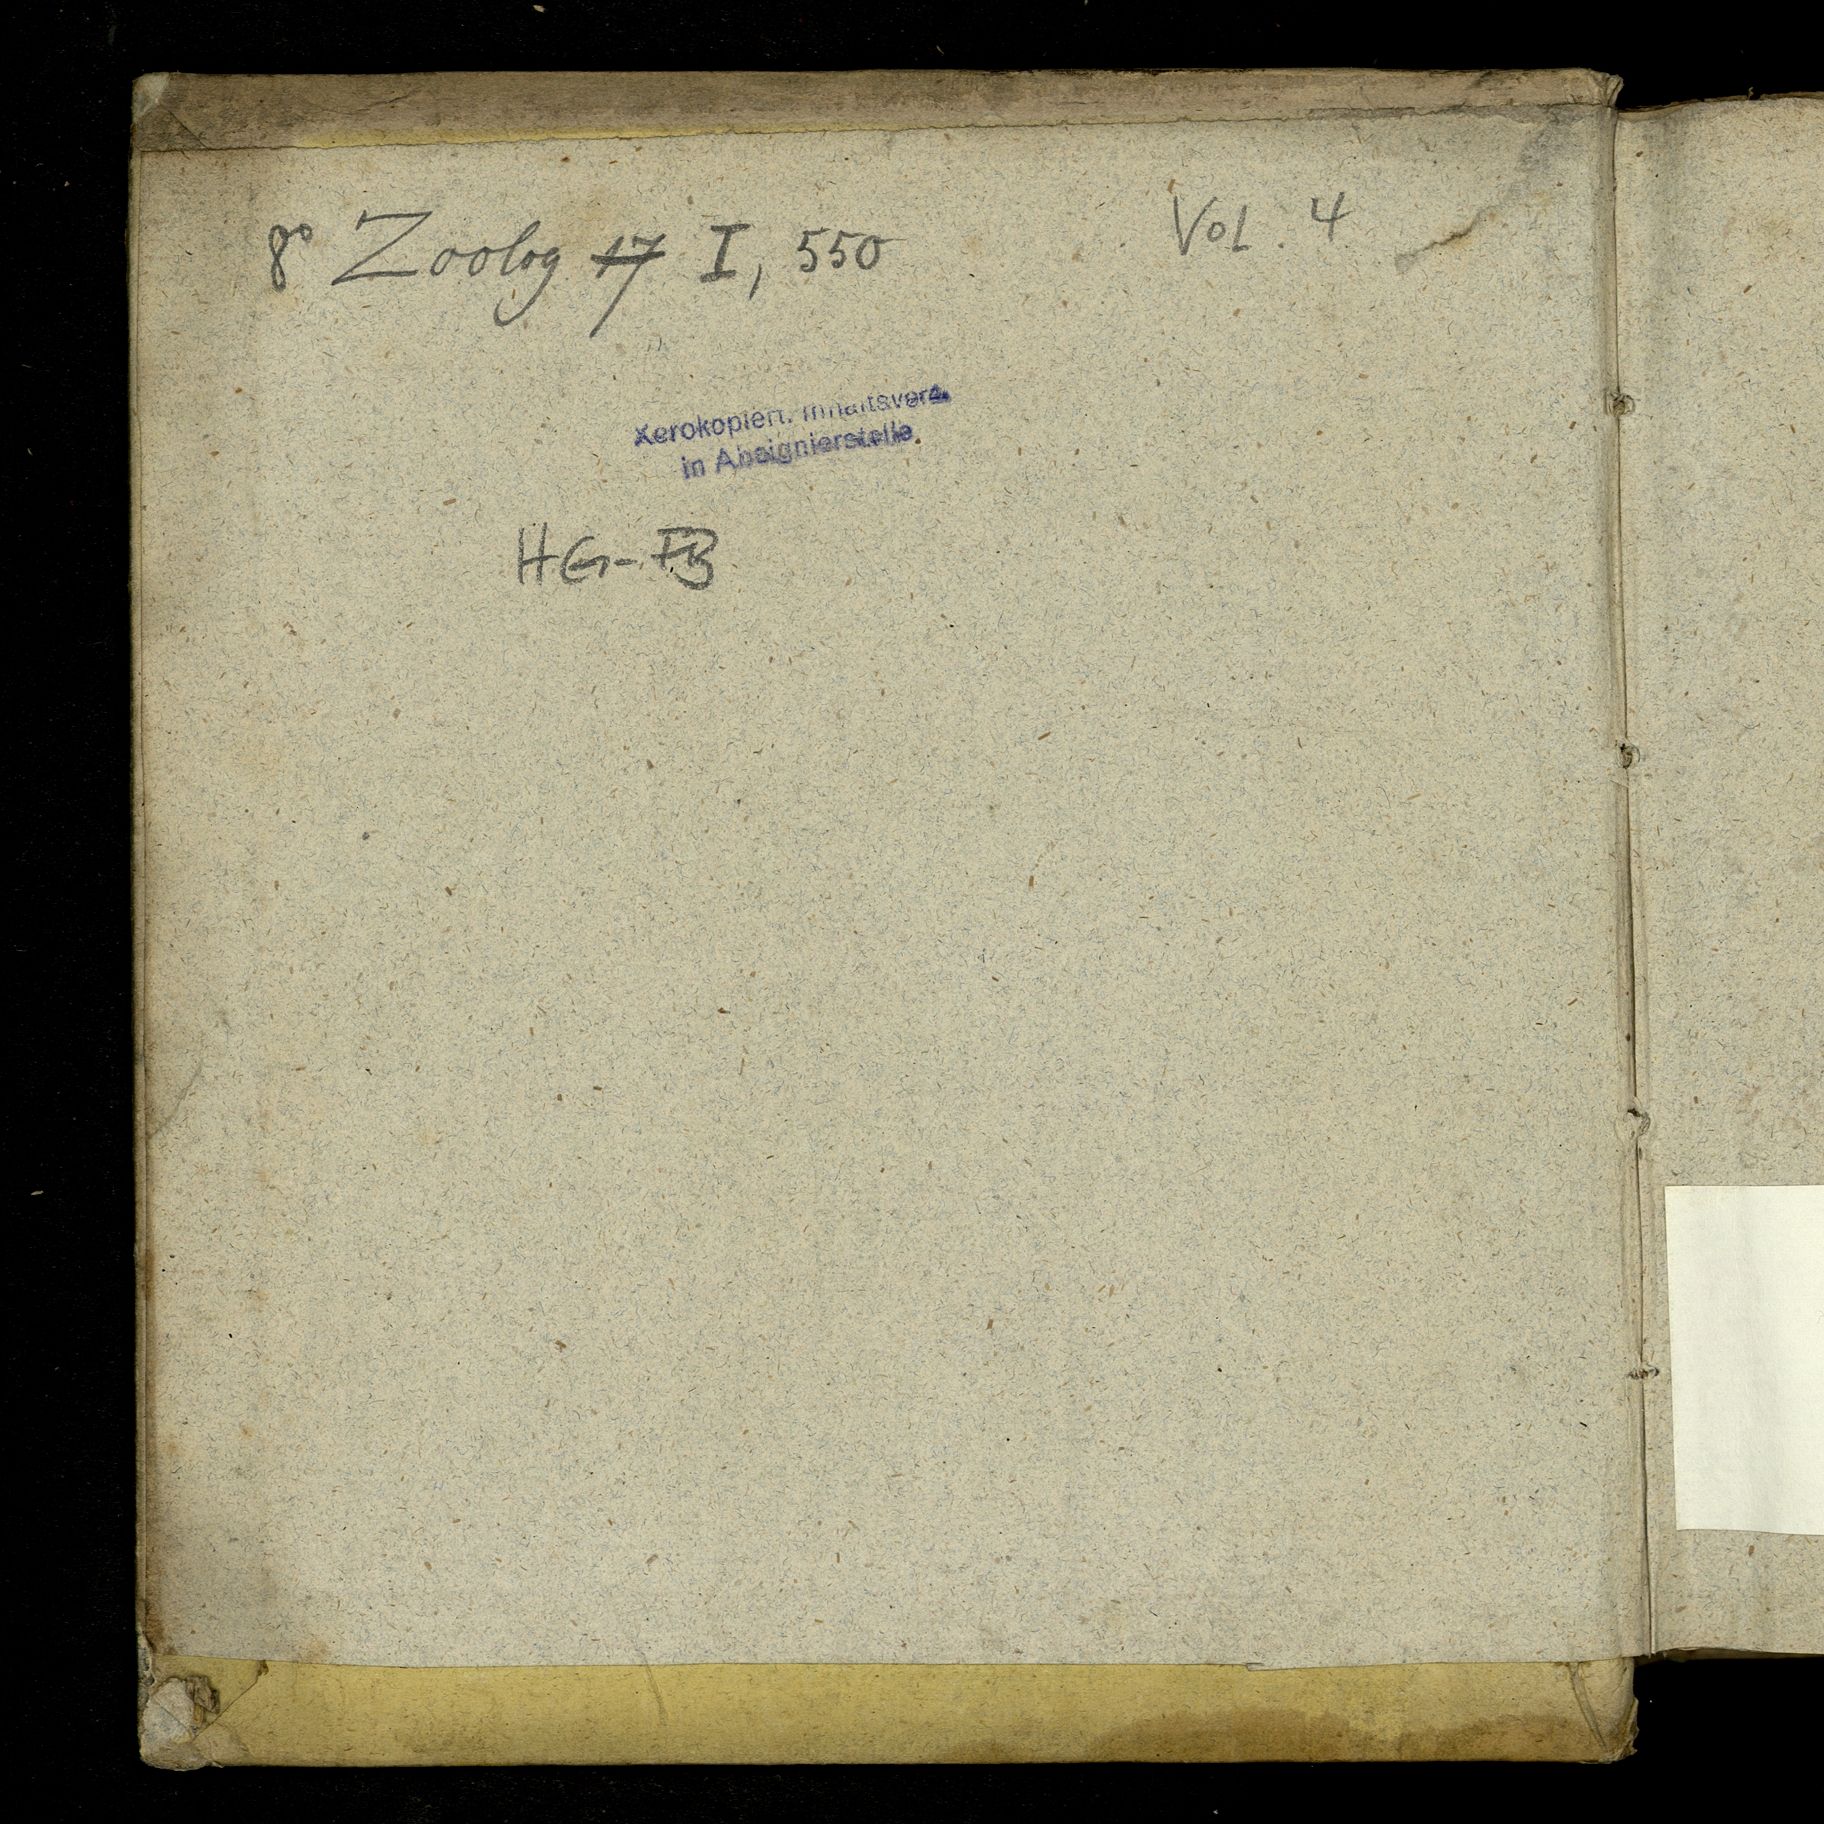 8° Zoolog 17 I, 550
Vol. 4
Xerokopiert. Inhaltsverz.
in Absignierstelle.
HG-FB